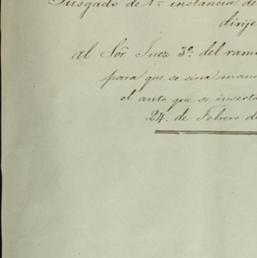 Jusgado de 1ª instancia de
dirije
al Sõr Juez 3º del ramo
para que se sirva man
el auto que se inserta
24 de Febrero de